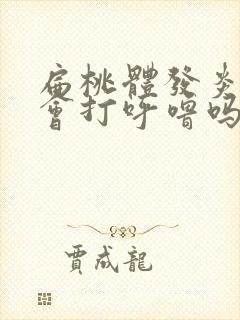 扁桃體發炎
會打呼嚕吗
賈成龍